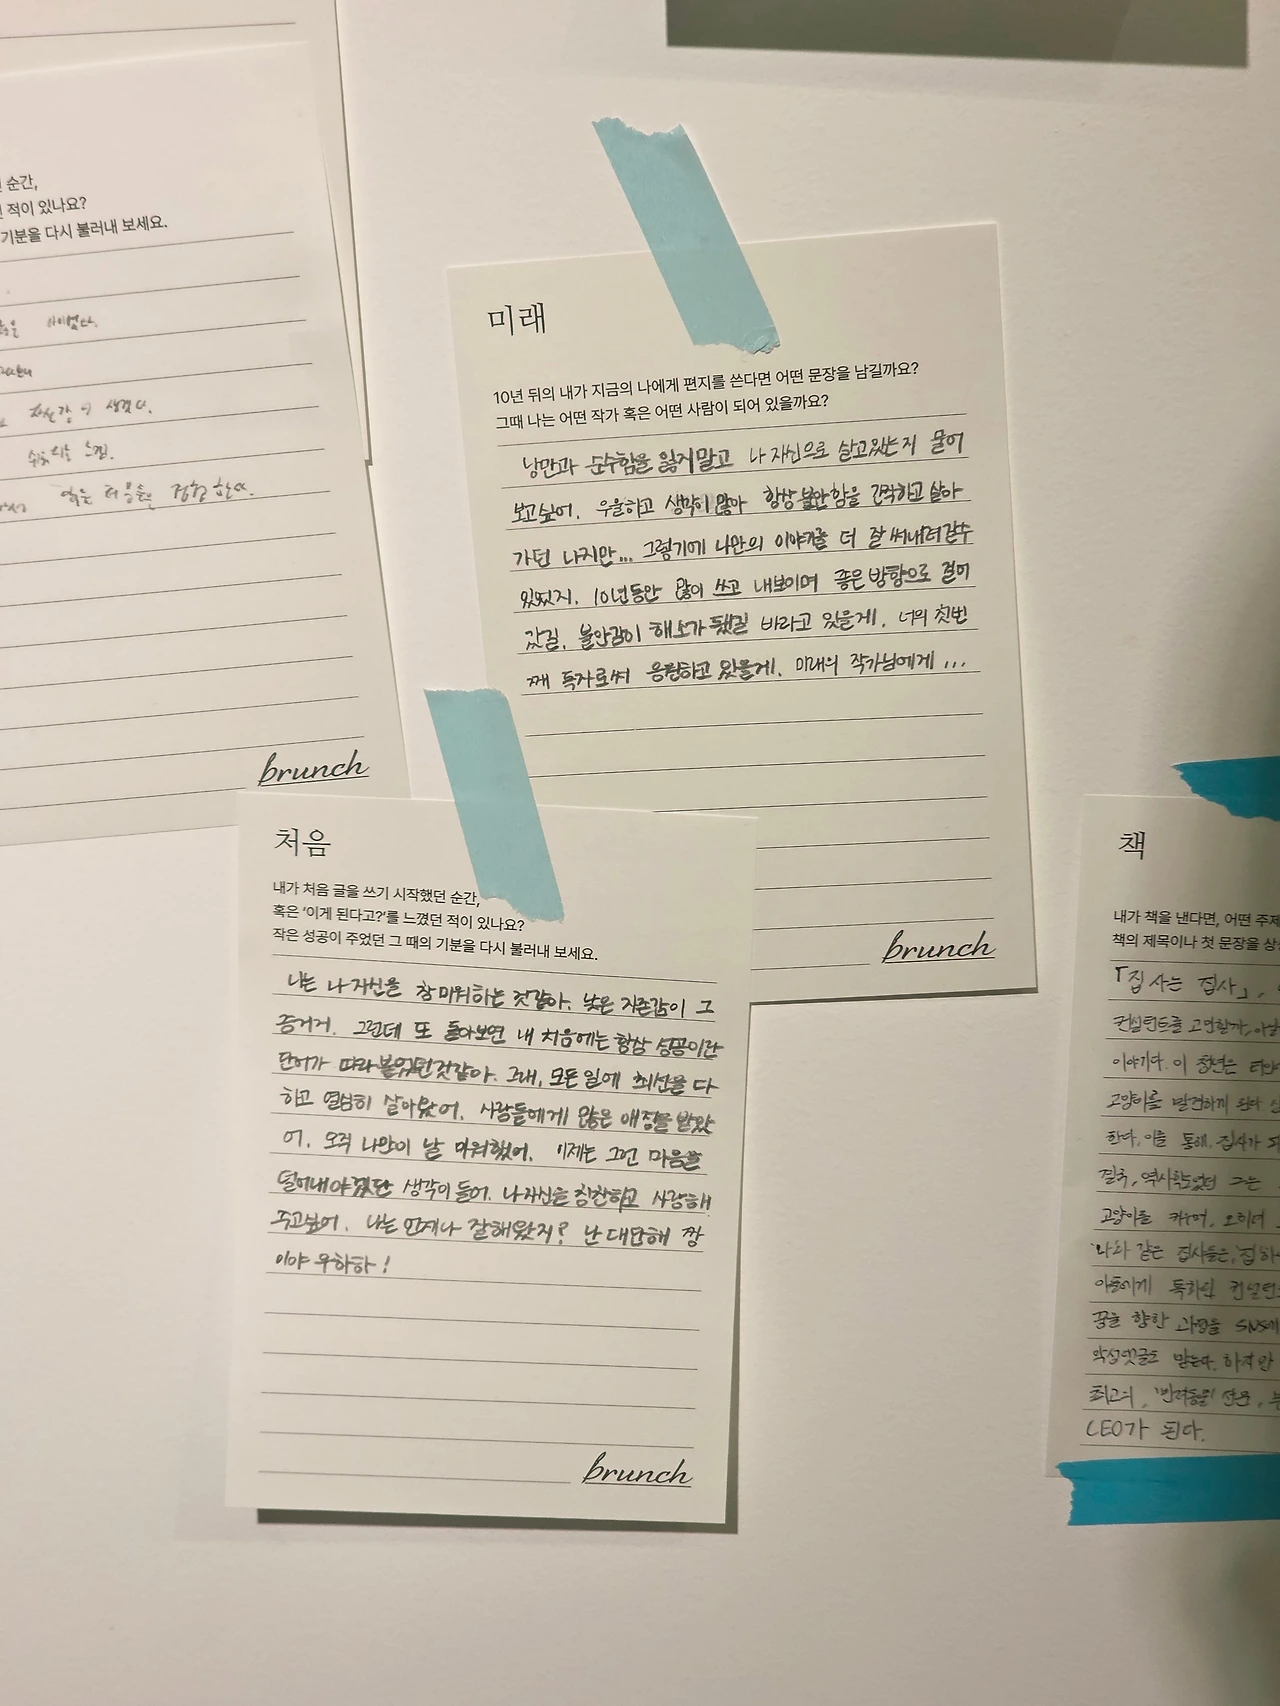 순간,
적이 있나요?
기분을 다시 불러내 보세요.
아이였다.
자신감이 생겼다.
쉬워지는 느낌.
처음
brunch
미래
10년 뒤의 내가 지금의 나에게 편지를 쓴다면 어떤 문장을 남길까요?
그때 나는 어떤 작가 혹은 어떤 사람이 되어 있을까요?
낭만과 순수함을 잃지말고 나 자신으로 살고있는지 물어
보고싶어. 우울하고 생각이 많아 항상 불안함을 간직하고 살아
가던 나지만... 그렇기에 나만의 이야기를 더 잘 써내려갈수
있었지. 10년동안 많이 쓰고 내보이며 좋은 방향으로 걸어
갔길. 불안감이 해소가 됐길 바라고 있을게. 너의 첫번
째 독자로써 응원하고 있을게. 미래의 작가님에게...
brunch
처음
내가 처음 글을 쓰기 시작했던 순간,
혹은 ‘이게 된다고?’를 느꼈던 적이 있나요?
작은 성공이 주었던 그 때의 기분을 다시 불러내 보세요.
나는 나 자신을 참 미워하는 것같아. 낮은 자존감이 그
증거지. 그런데 또 돌아보면 내 처음에는 항상 성공이란
단어가 따라붙었던것같아. 그래, 모든 일에 최선을 다
하고 열심히 살아왔어. 사람들에게 많은 애정을 받았
어. 오직 나만이 날 미워했어. 이제는 그런 마음을
덜어내야겠단 생각이 들어. 나 자신을 칭찬하고 사랑해
주고싶어. 나는 언제나 잘해왔지? 난 대단해 짱
이야 우하하!
brunch
책
내가 책을 낸다면, 어떤 주제
책의 제목이나 첫 문장을 상
「집사는 집사」,
컨설턴트를 고민할까,
이야기다. 이 청년은
고양이를 발견하게 된다
한다. 이를 통해, 집사가
결국, 역사학도였던 그는
고양이를 키우며, 오히려
'나와 같은 집사들은, '집사
이들에게 특화된 컨설턴
꿈을 향한 과정을 SNS에
악성댓글도 받는다. 하지만
최고의, '반려동물' 전문,
CEO가 된다.